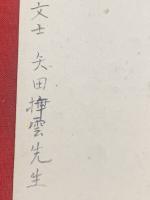 文士 矢田挿雲先生